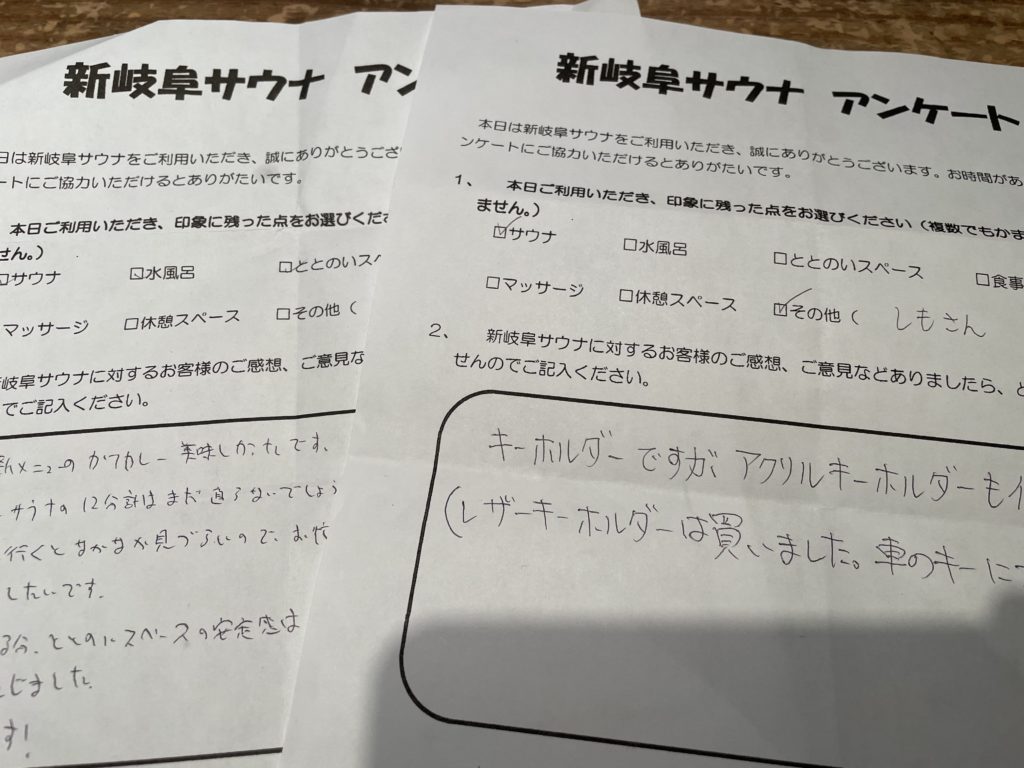 新岐阜サウナ アン
日は新岐阜サウナをご利用いただき、誠にありがとうござい
ケートにご協力いただけるとありがたいです。
本日ご利用いただき、印象に残った点をお選びくださ
せん。)
□サウナ □水風呂 □ととのいスペ
マッサージ □休憩スペース □その他(
岐阜サウナに対するお客様のご感想、ご意見な
でご記入ください。
新メニューのカツカレー美味しかったです。
サウナの12分計はまだ直らないでしょう
行くとなかなか見づらいので、お忙
したいです。
る分、ととのいスペースの安定感は
じました。
す!
新岐阜サウナ アンケート
本日は新岐阜サウナをご利用いただき、誠にありがとうございます。お時間があ
ンケートにご協力いただけるとありがたいです。
1、 本日ご利用いただき、印象に残った点をお選びください(複数でもかま
ません。)
☑サウナ □水風呂 □ととのいスペース □食事
□マッサージ □休憩スペース ☑その他( しもさん
2、 新岐阜サウナに対するお客様のご感想、ご意見などありましたら、ど
せんのでご記入ください。
キーホルダーですが アクリルキーホルダーも
(レザーキーホルダーは買いました。車のキーに